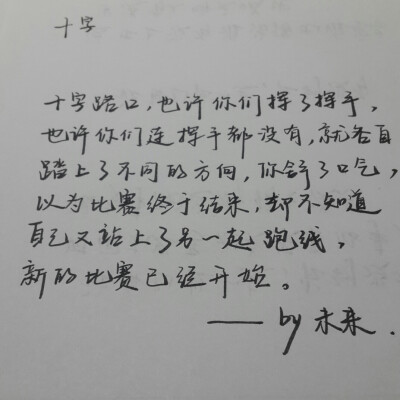 十字
十字路口，也许你们挥了挥手，
也许你们连挥手都没有，就各自
踏上了不同的方向，你舒了口气，
以为比赛终于结束，却不知道
自己又站上了另一起跑线，
新的比赛已经开始。
——by 未来.